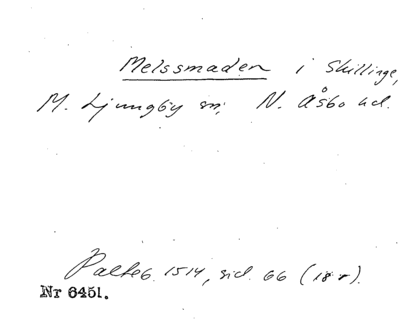 Melssmaden i Skillinge,
M. Ljungby sn, N. Åsbo hd.
Palteb. 1514, sid. 66 (18 r).
Nr 6451.